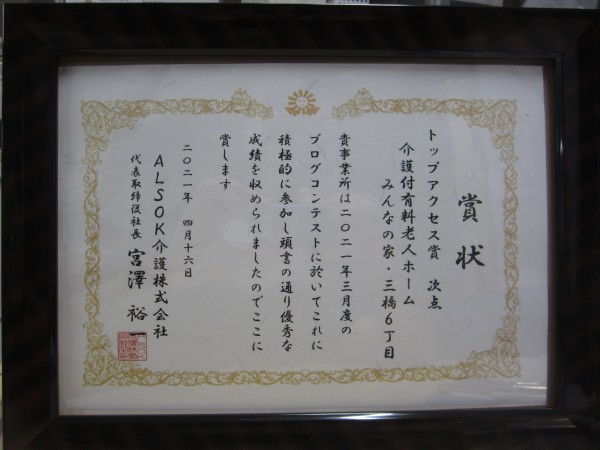 賞状
トップアクセス賞 次点
介護付有料老人ホーム
みんなの家・三橋6丁目
貴事業所は二〇二一年三月度の
ブログコンテストに於いてこれに
積極的に参加し頭書の通り優秀な
成績を収められましたのでここに
賞します
二〇二一年 四月十六日
ALSOK介護株式会社
代表取締役社長 宮澤 裕一